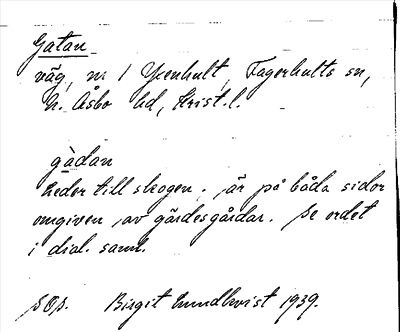 Gatan
väg, nr 1 Ykenhult, Fagerhults sn,
N. Åsbo hd, Krist. l.
gàdan
Leder till skogen, är på båda sidor
omgiven av gärdesgårdar. Se ordet
i dial. saml.
Birgit Lundkvist 1939.